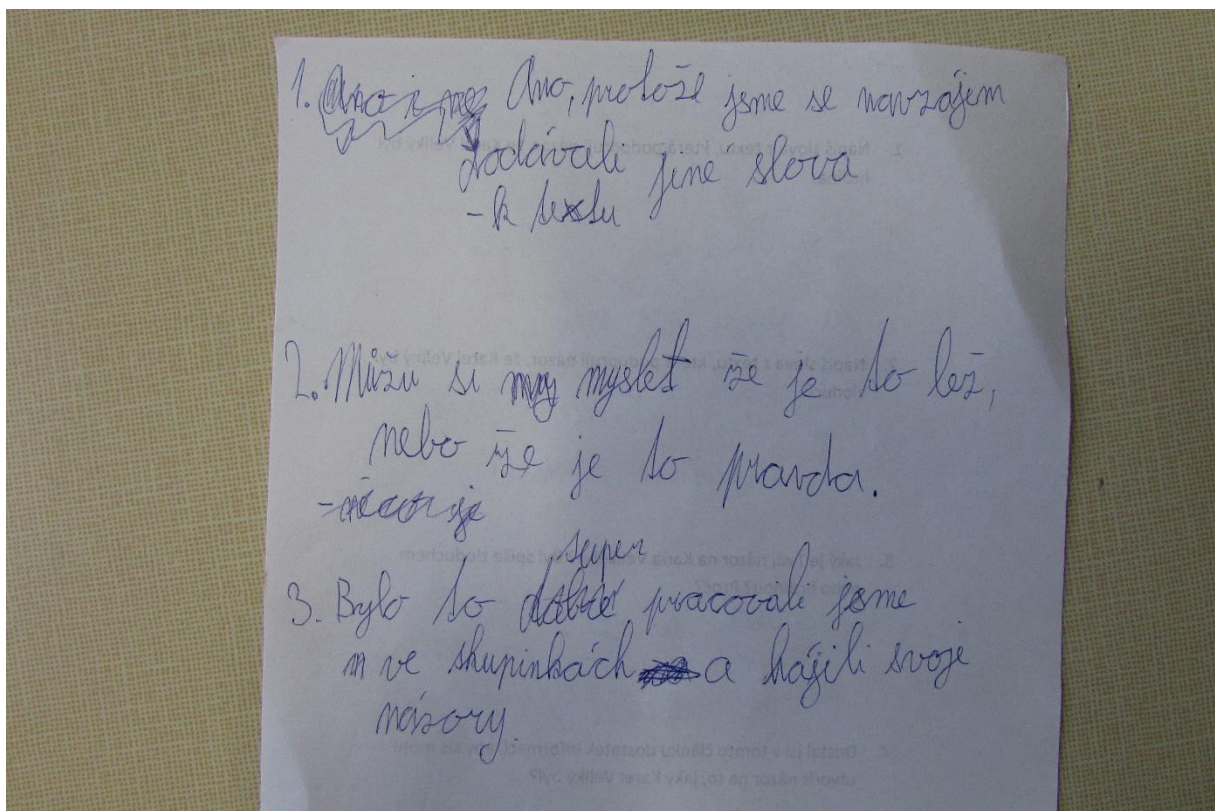 1. Ano i ne Ano, protože jsme se navzájem
dodávali jiné slova
- k textu
2. Můžu si my myslet že je to lež,
nebo že je to pravda.
super
3. Bylo to dobré pracovali jsme
ve skupinkách a hájili svoje
názory.